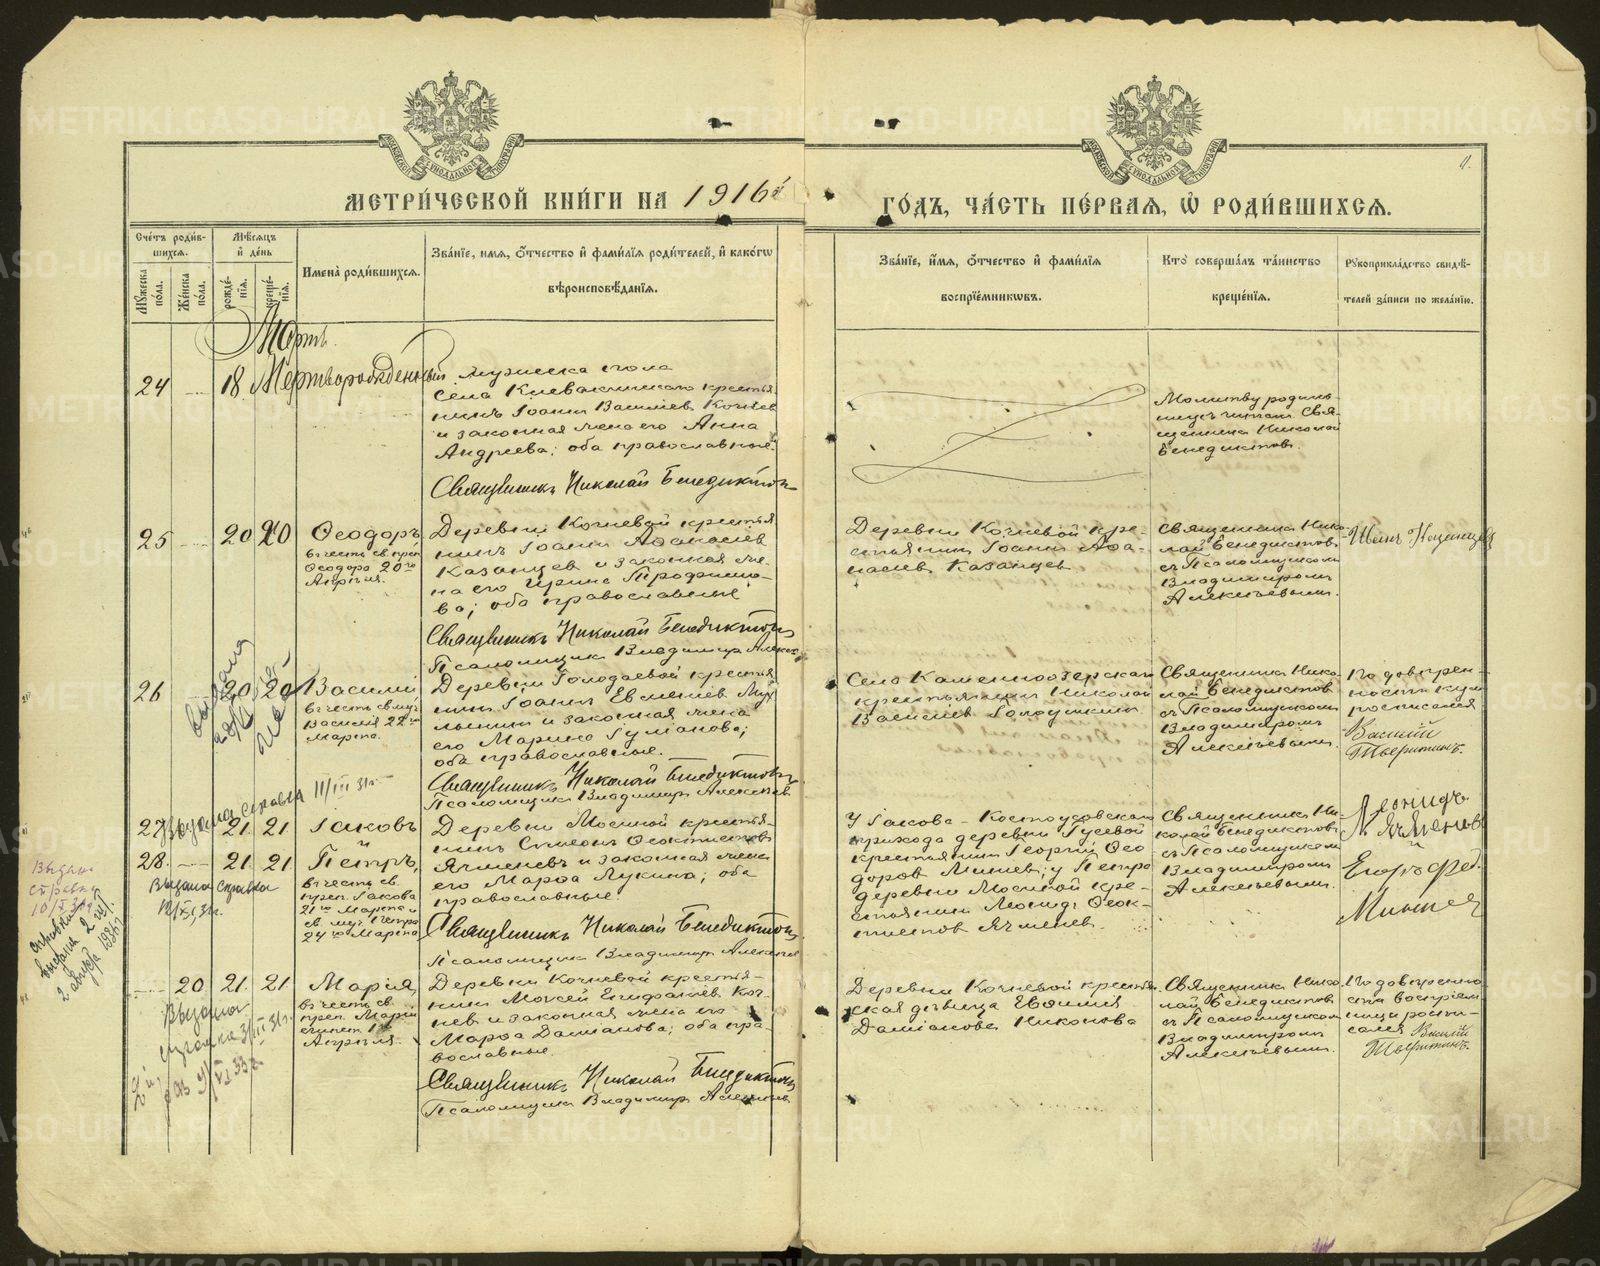 МЕТРИ́ЧЕСКОЙ КНИ́ГИ НА 1916й
ГО́ДЪ, ЧА́СТЬ ПЕ́РВАЯ, Ѡ҆ РОДИ́ВШИХСЯ.
Сче́тъ роди́вшихся.
Мꙋ́жеска по́ла.
Же́нска по́ла.
Мѣ́сяцъ и҆ де́нь
рожде́нїя.
креще́нїя.
Имена̀ роди́вшихся.
Зва́нїе, имя, ѻ҆́тчество и҆ фами́лїя роди́телей, и҆ како́гѡ
вѣроисповѣ́данїя.
Зва́нїе, и҆́мя, ѻ҆́тчество и҆ фами́лїя
воспрїе́мникѡвъ.
Кто̀ соверша́лъ та́инство
креще́нїя.
Рꙋкоприкла́дство свидѣ́-
телей за́писи по жела́нїю.
Мартъ.
24
18
Мертворожденный
мужеска пола
Села Клевакинскаго крестья
нинъ Іоаннъ Василіевъ Кочневъ
и законная жена его Анна
Андреева; оба православные.
Священникъ Николай Бенедиктовъ
Молитву родиль-
ницѣ читалъ Свя-
щенникъ Николай
Бенедиктовъ.
25
20
20
Ѳеодоръ
въ честь св. преп.
Ѳеодора 20го
Апрѣля.
Деревни Кочневой крестья
нинъ Іоаннъ Аѳанасіевъ
Казанцев и законная же-
на его Ирина Трофимо-
ва; оба православные
Священникъ Николай Бенедиктовъ
Псаломщикъ Владимиръ Алексѣевъ
Деревни Кочневой кре-
стьянинъ Іоаннъ Аѳа-
насіевъ Казанцевъ
Священникъ Нико-
лай Бенедиктовъ
съ Псаломщикомъ
Владимиромъ
Алексѣевымъ.
Иванъ Казанцевъ
26
20
20
Василій,
въ честь св. муч.
Василія 22го
Марта.
Деревни Голодаевой крестья
нинъ Іоаннъ Евменіевъ
и законная жена
его Марина Гуманова;
оба православные.
Священникъ Николай Бенедиктовъ
Псаломщикъ Владимиръ Алексѣевъ
Села Каменноозерскаго
крестьянинъ Николай
Василіевъ Голоушкинъ
Священникъ Нико-
лай Бенедиктовъ
съ Псаломщикомъ
Владимиромъ
Алексѣевымъ.
По довѣрен-
ности кума
росписался
Василій
Тверитинъ.
Выдана справка 11/III 31г
27
21
21
Іаковъ
и
28
21
21
Петръ,
въ честь св.
преп. Іакова
21го Марта и
св. муч. Петра
24го Марта
Деревни Мосиной крестья-
нинъ Симеонъ Ѳеоктистовъ
Ячменевъ и законная жена
его Марѳа Лукина; оба
православные.
Священникъ Николай Бенедиктовъ
Псаломщикъ Владимиръ Алексѣевъ
У Іакова - Костоусовскаго
прихода деревни Гусевой
крестьянинъ Георгій Ѳео
доровъ Минеевъ; у Петра
деревни Мосиной кре-
стьянинъ Леонидъ Ѳеок-
тистовъ Ячменевъ.
Священникъ Ни-
колай Бенедиктовъ
съ Псаломщикомъ
Владимиромъ
Алексѣевымъ.
Леонидъ
Ячменевъ
и
Егоръ Фед.
Минеев
Выдана справка
Выдана
справка
справка
выдана
2 августа 1936г
20
21
21
Марія,
въ честь св.
преп. Маріи
египет. 1го
Апрѣля.
Деревни Кочневой крестья-
нинъ Моисей Епифаніевъ Коч-
невъ и законная жена его
Марѳа Даміанова; оба пра-
вославные.
Священникъ Николай Бенедиктовъ
Псаломщикъ Владимиръ Алексѣевъ
Деревни Кочневой крестьян
ская дѣвица Евѳимія
Даміанова Никонова
Священникъ Нико
лай Бенедиктовъ
съ Псаломщикомъ
Владимиромъ
Алексѣевымъ.
По довѣренно
сти воспріем-
ницы роспи-
сался Василій
Тверитинъ.
Выдана
METRIKI.GASO-URAL.RU